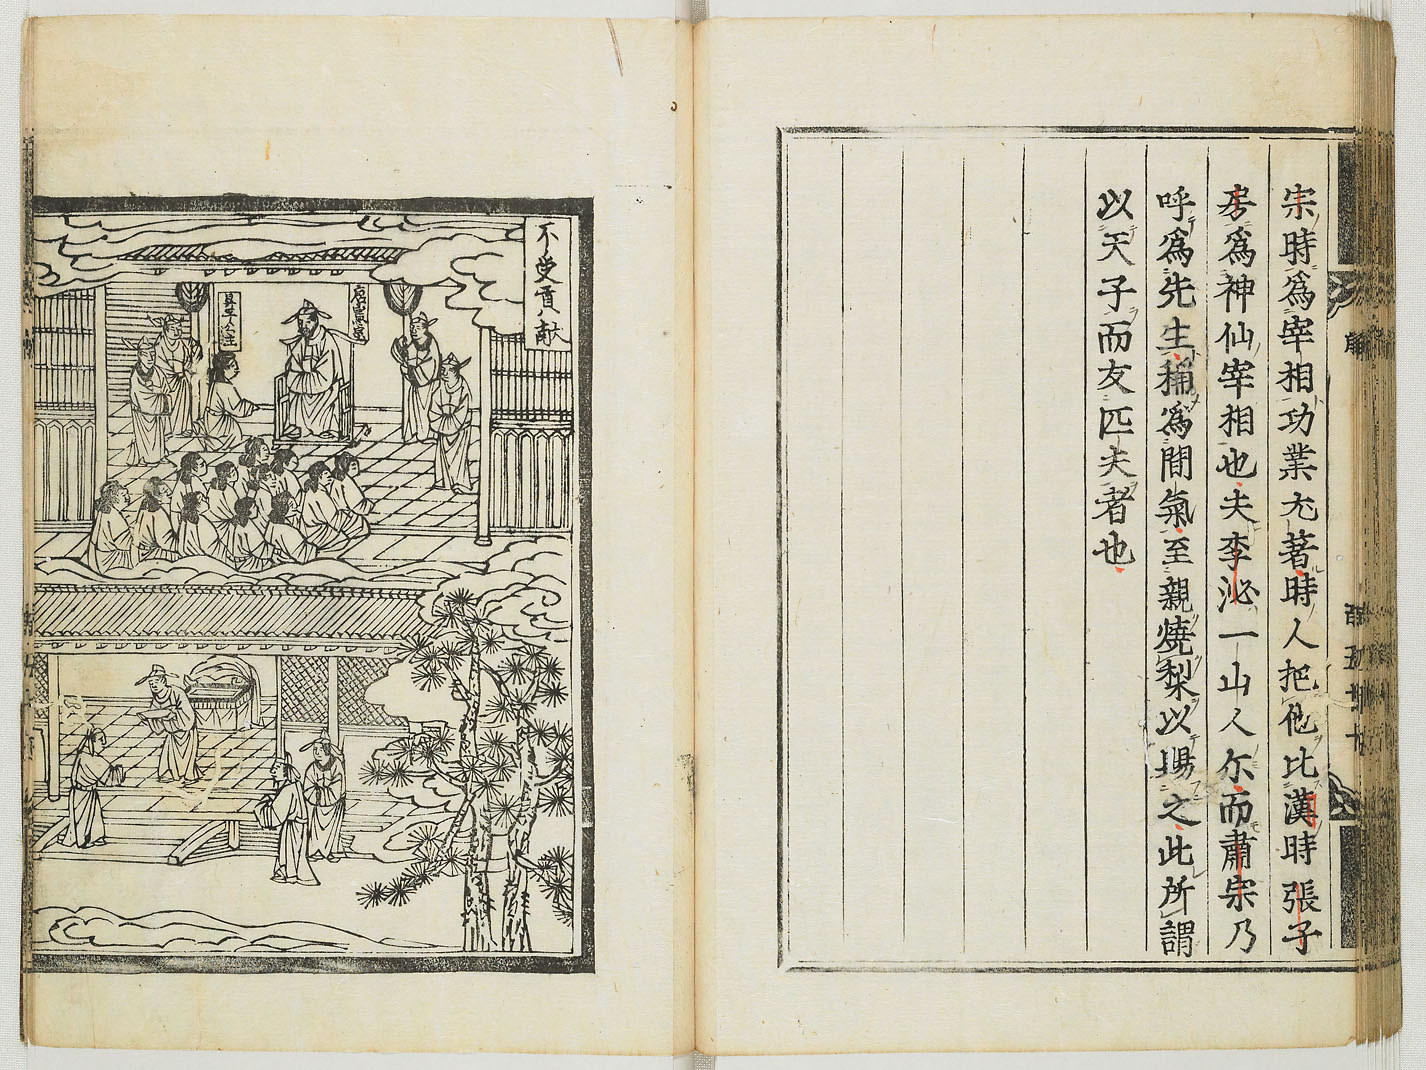 宗時爲宰相功業尤著時人把他比漢時張子
房爲神仙宰相也夫李泌一山人尓而肅宗乃
呼爲先生稱爲間氣至親燒梨以賜之此所謂
以天子而友匹夫者也
不受貢献
唐憲宗
昇平公主